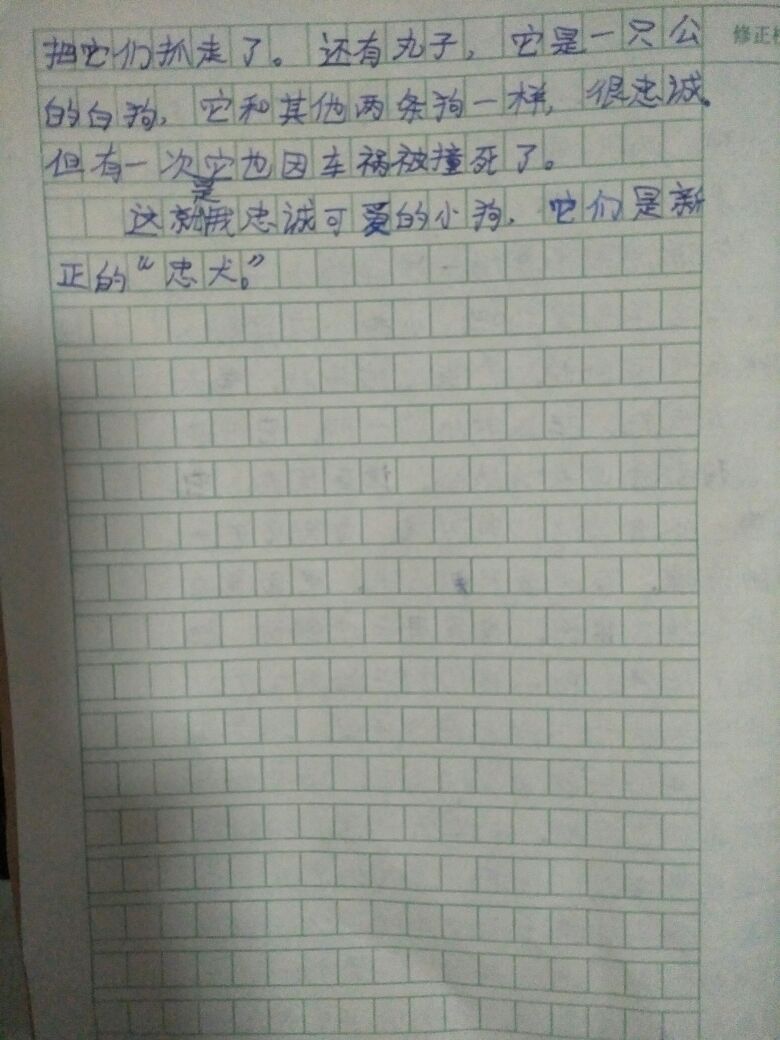 把它们抓走了。还有丸子，它是一只公
修正栏
的白狗，它和其他两条狗一样，很忠诚。
但有一次它也因车祸被撞死了。
这就是我忠诚可爱的小狗，它们是新
正的“忠犬。”